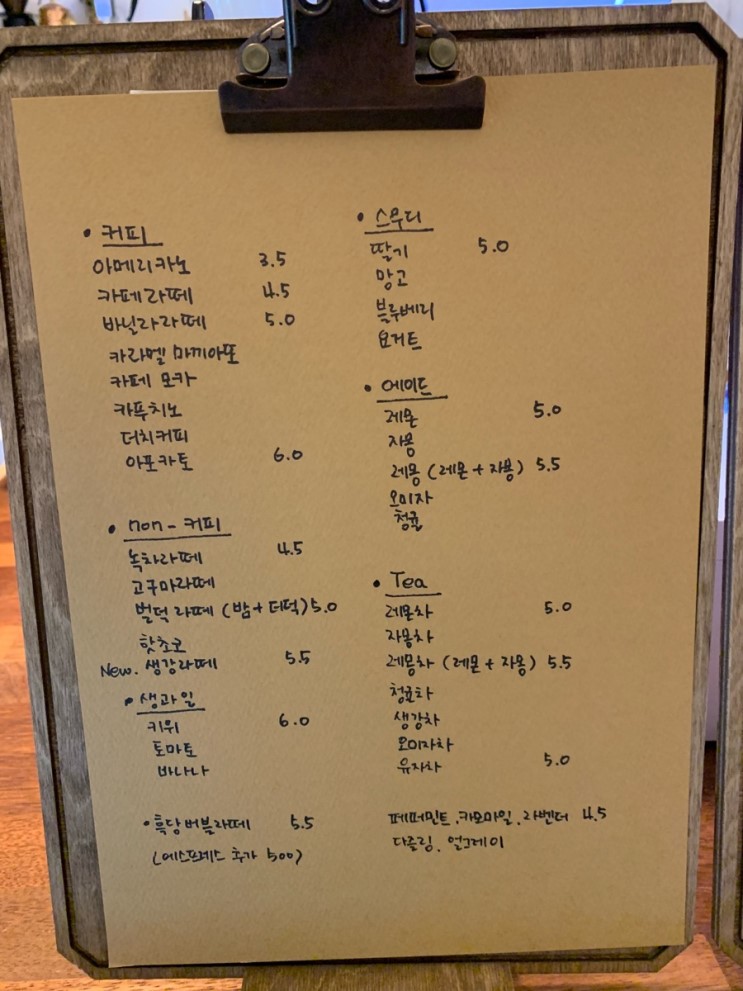 • 커피
아메리카노 3.5
카페라떼 4.5
바닐라라떼 5.0
카라멜 마끼아또
카페 모카
카푸치노
더치커피
아포카토 6.0
• non - 커피
녹차라떼 4.5
고구마라떼
벌덕라떼 (밤+더덕) 5.0
핫초코
New. 생강라떼 5.5
• 생과일
키위 6.0
토마토
바나나
• 흑당버블라떼 5.5
(에스프레스 추가 500)
• 스무디
딸기 5.0
망고
블루베리
요거트
• 에이드
레몬 5.0
자몽
레몽 (레몬+자몽) 5.5
오미자
청귤
• Tea
레몬차 5.0
자몽차
레몽차 (레몬+자몽) 5.5
청귤차
생강차
오미자차
유자차 5.0
페퍼민트. 카모마일. 라벤더 4.5
다즐링. 얼그레이